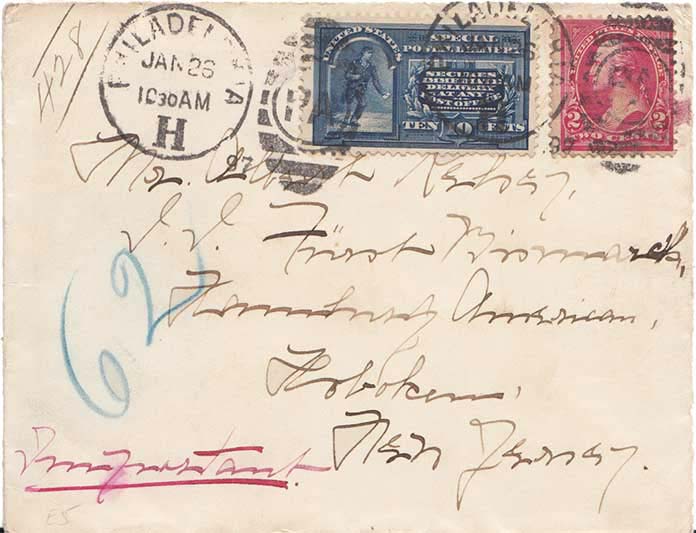 428
PHILADELPHIA
JAN 26
10 30 AM
H
97
PA
UNITED STATES
SPECIAL
POSTAL DELIVERY
SECURES
IMMEDIATE
DELIVERY
AT ANY
POST OFFICE
TEN CENTS
2 2
TWO CENTS
Mr. Albert Kelsey,
S. S. Fürst Bismarck,
Hamburg American,
Hoboken,
New Jersey.
62
Important
E5